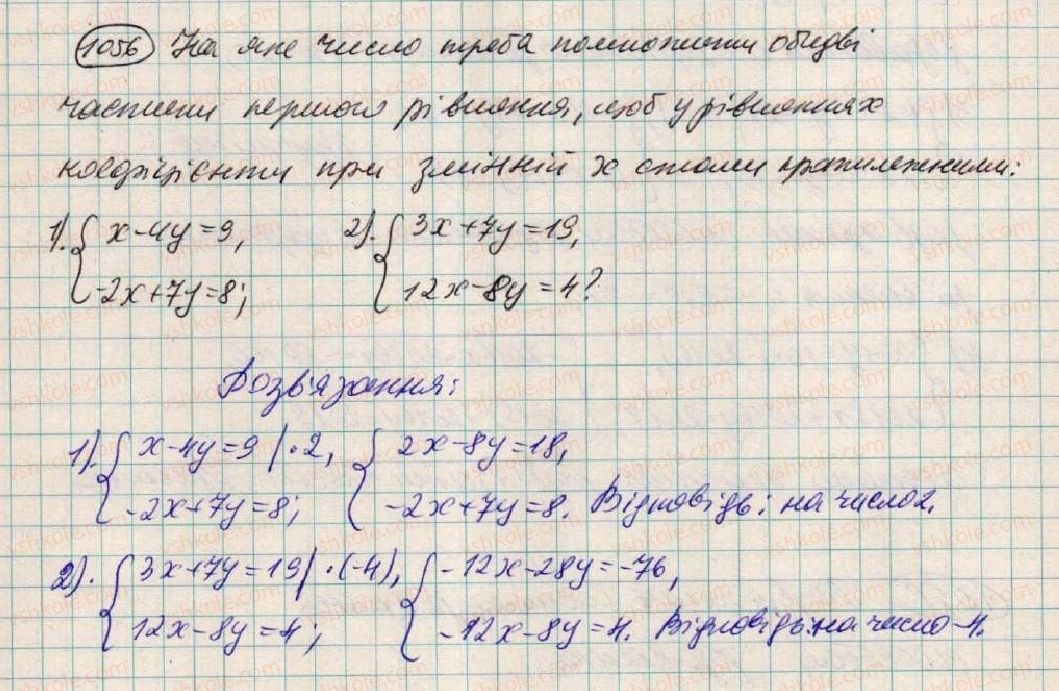 1056 На яке число треба помножити обидві
частини першого рівняння, щоб у рівняннях
коефіцієнти при змінній x стали протилежними:
1). { x-4y=9, 2). { 3x+7y=19,
-2x+7y=8; 12x-8y=4?
Розв'язання:
1). { x-4y=9 |·2, { 2x-8y=18,
-2x+7y=8; -2x+7y=8. Відповідь: на число 2.
2). { 3x+7y=19 |·(-4), { -12x-28y=-76,
12x-8y=4; -12x-8y=4. Відповідь: на число -4.